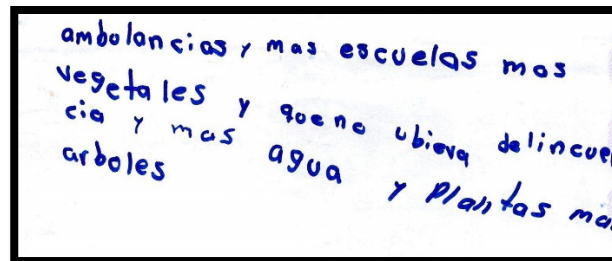 ambulancias y mas escuelas mas
vegetales y que no ubiera delincuen
cia y mas agua y plantas mas
arboles